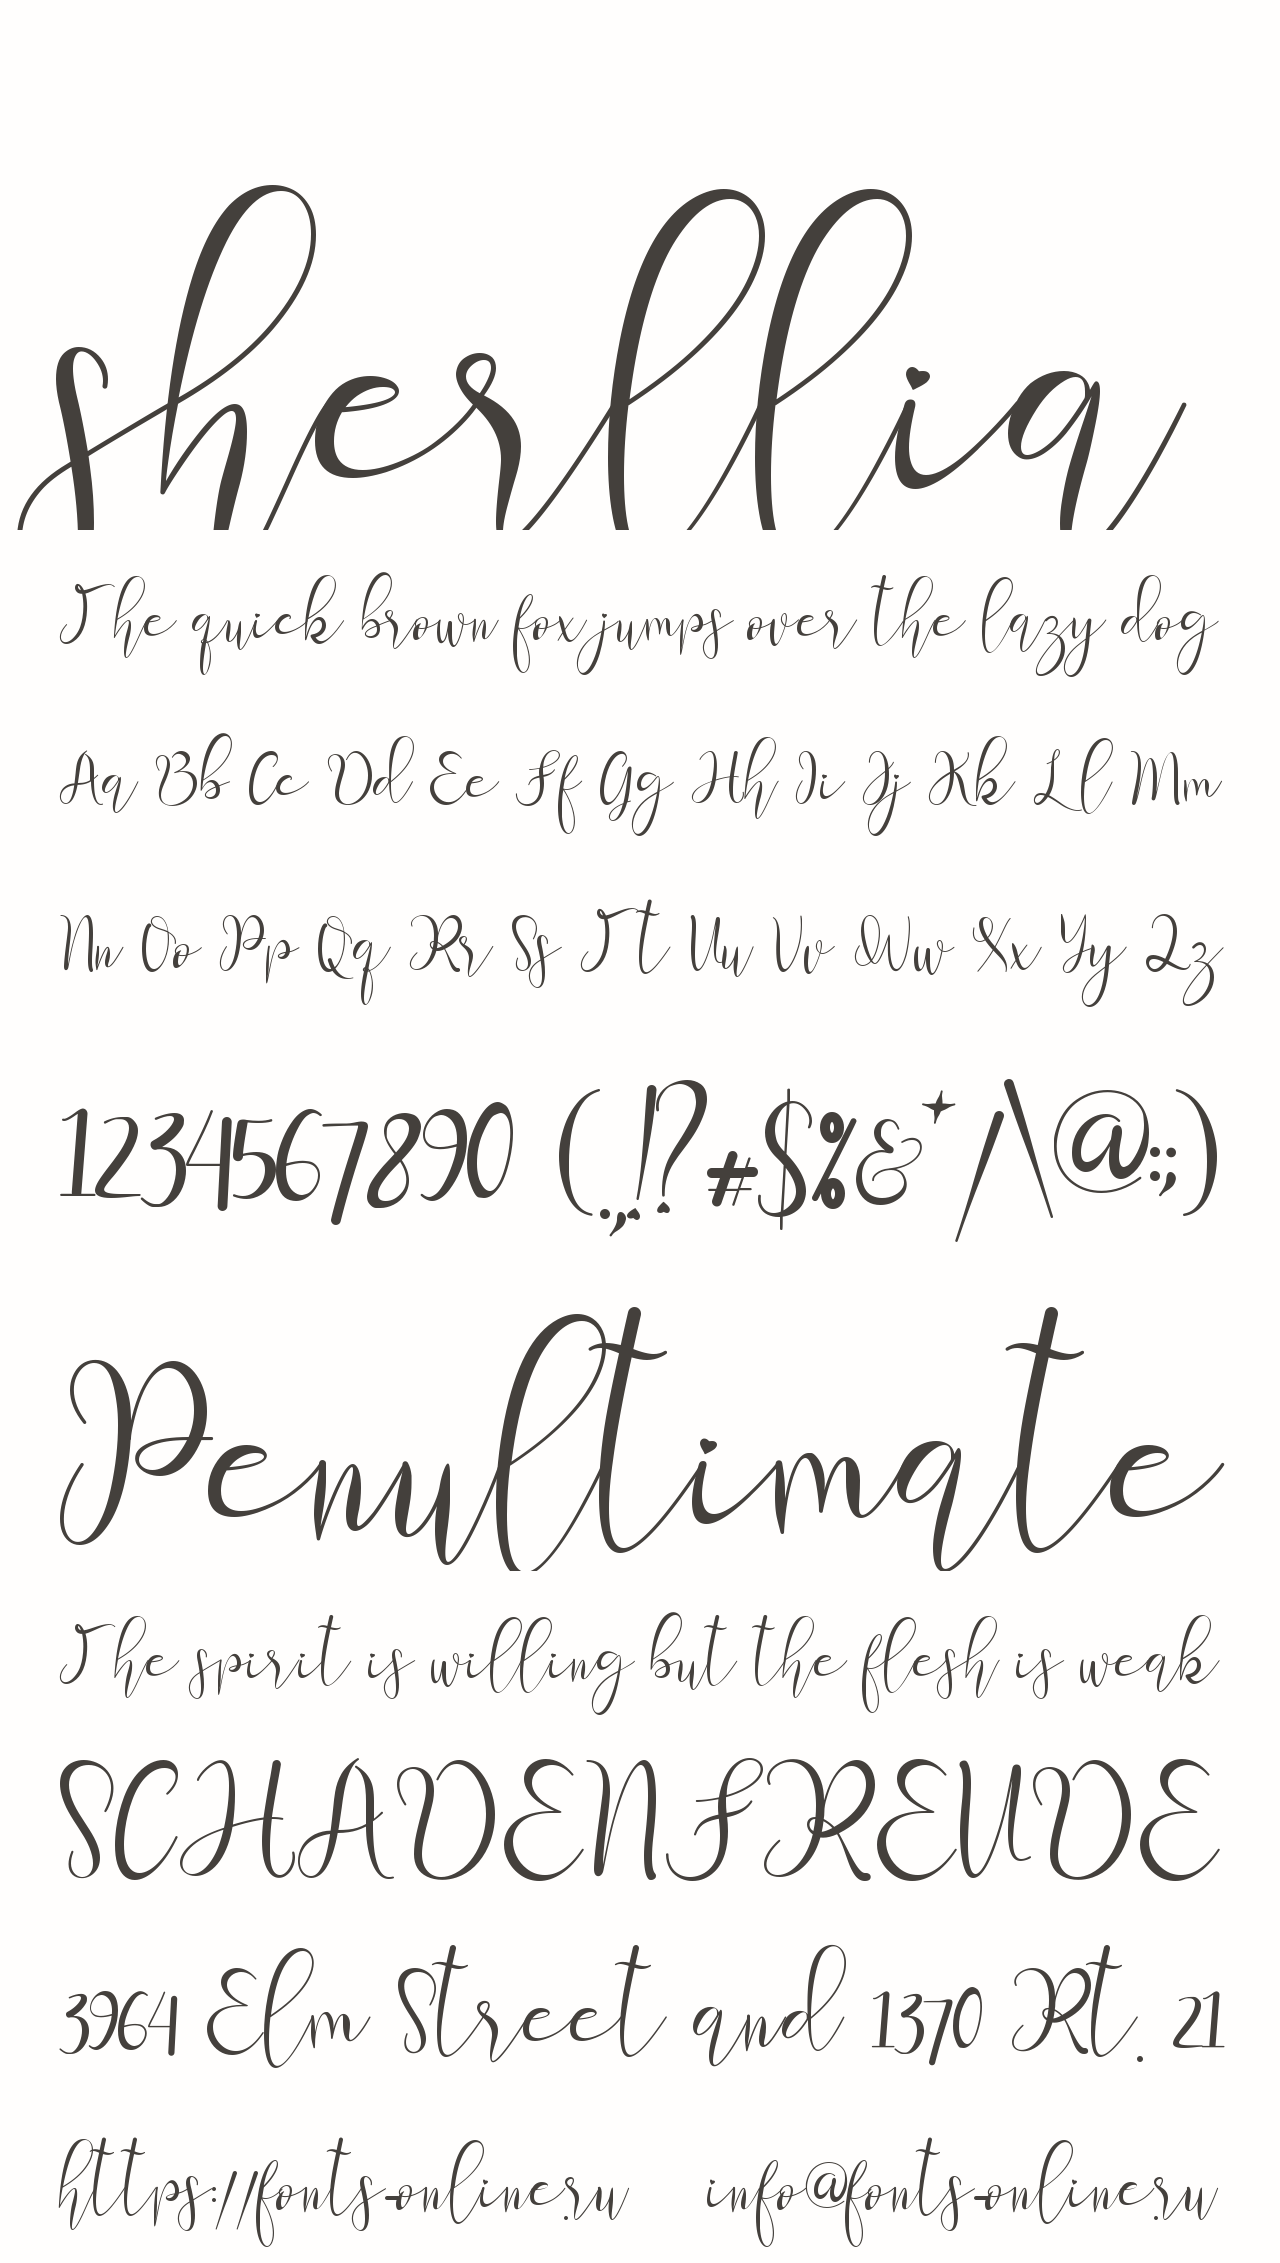 sherllia
The quick brown fox jumps over the lazy dog
Aa Bb Cc Dd Ee Ff Gg Hh Ii Jj Kk Ll Mm
Nn Oo Pp Qq Rr Ss Tt Uu Vv Ww Xx Yy Zz
1234567890 (.,!?#$%&*/\@:;)
Penultimate
The spirit is willing but the flesh is weak
SCHADENFREUDE
3964 Elm Street and 1370 Rt. 21
https://fonts-online.ru info@fonts-online.ru